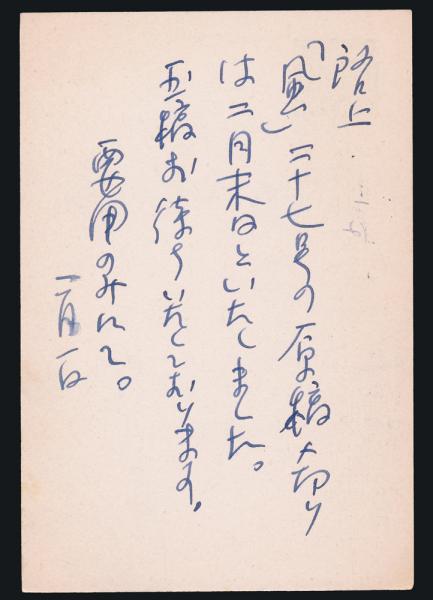 略上
「風」二十七号の原稿〆切り
は二月末日といたしました。
玉稿お待ちいたしております。
要用のみにて。
二月一日